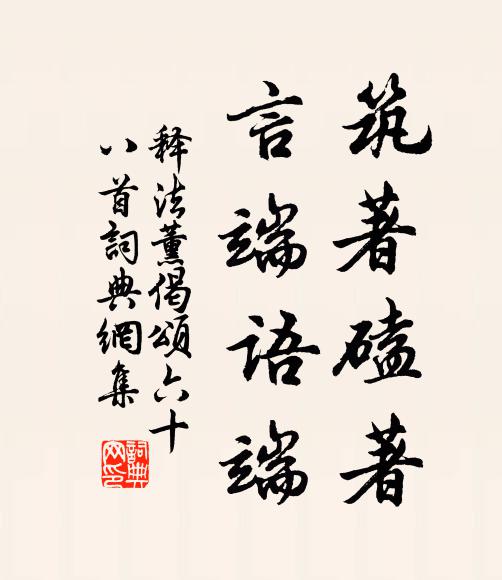 筑著磕著
言端语端
释法薰偈颂六十
八首詞典網集
詞典網印